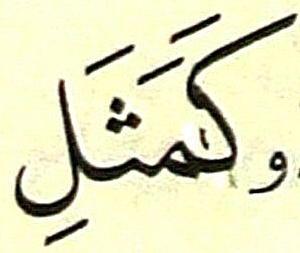 وكَمَثَلِ